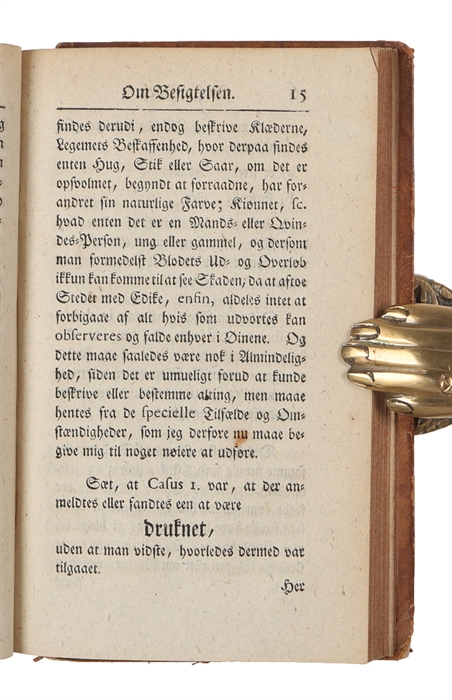 Om Besigtelsen. 15
findes derudi, endog beskrive Klæderne,
Legemets Beskaffenhed, hvor derpaa findes
enten Hug, Stik eller Saar, om det er
opsvolmet, begyndt at forraadne, har for-
andret sin naturlige Farve; Kiønnet, sc.
hvad enten det er en Mands- eller Qvin-
des-Person, ung eller gammel, og dersom
man formedelst Blodets Ud- og Overløb
ikkun kan komme til at see Skaden, da at aftoe
Stedet med Edike, enfin, aldeles intet at
forbigaae af alt hvis som udvortes kan
observeres og falde enhver i Øinene. Og
dette maae saaledes være nok i Almindelig-
hed, siden det er umueligt forud at kunde
beskrive eller bestemme alting, men maae
hentes fra de specielle Tilfælde og Om-
stændigheder, som jeg derfore nu maae be-
give mig til noget nøiere at udføre.
Sæt, at Casus 1. var, at der an-
meldtes eller fandtes een at være
druknet,
uden at man vidste, hvorledes dermed var
tilgaaet.
Her